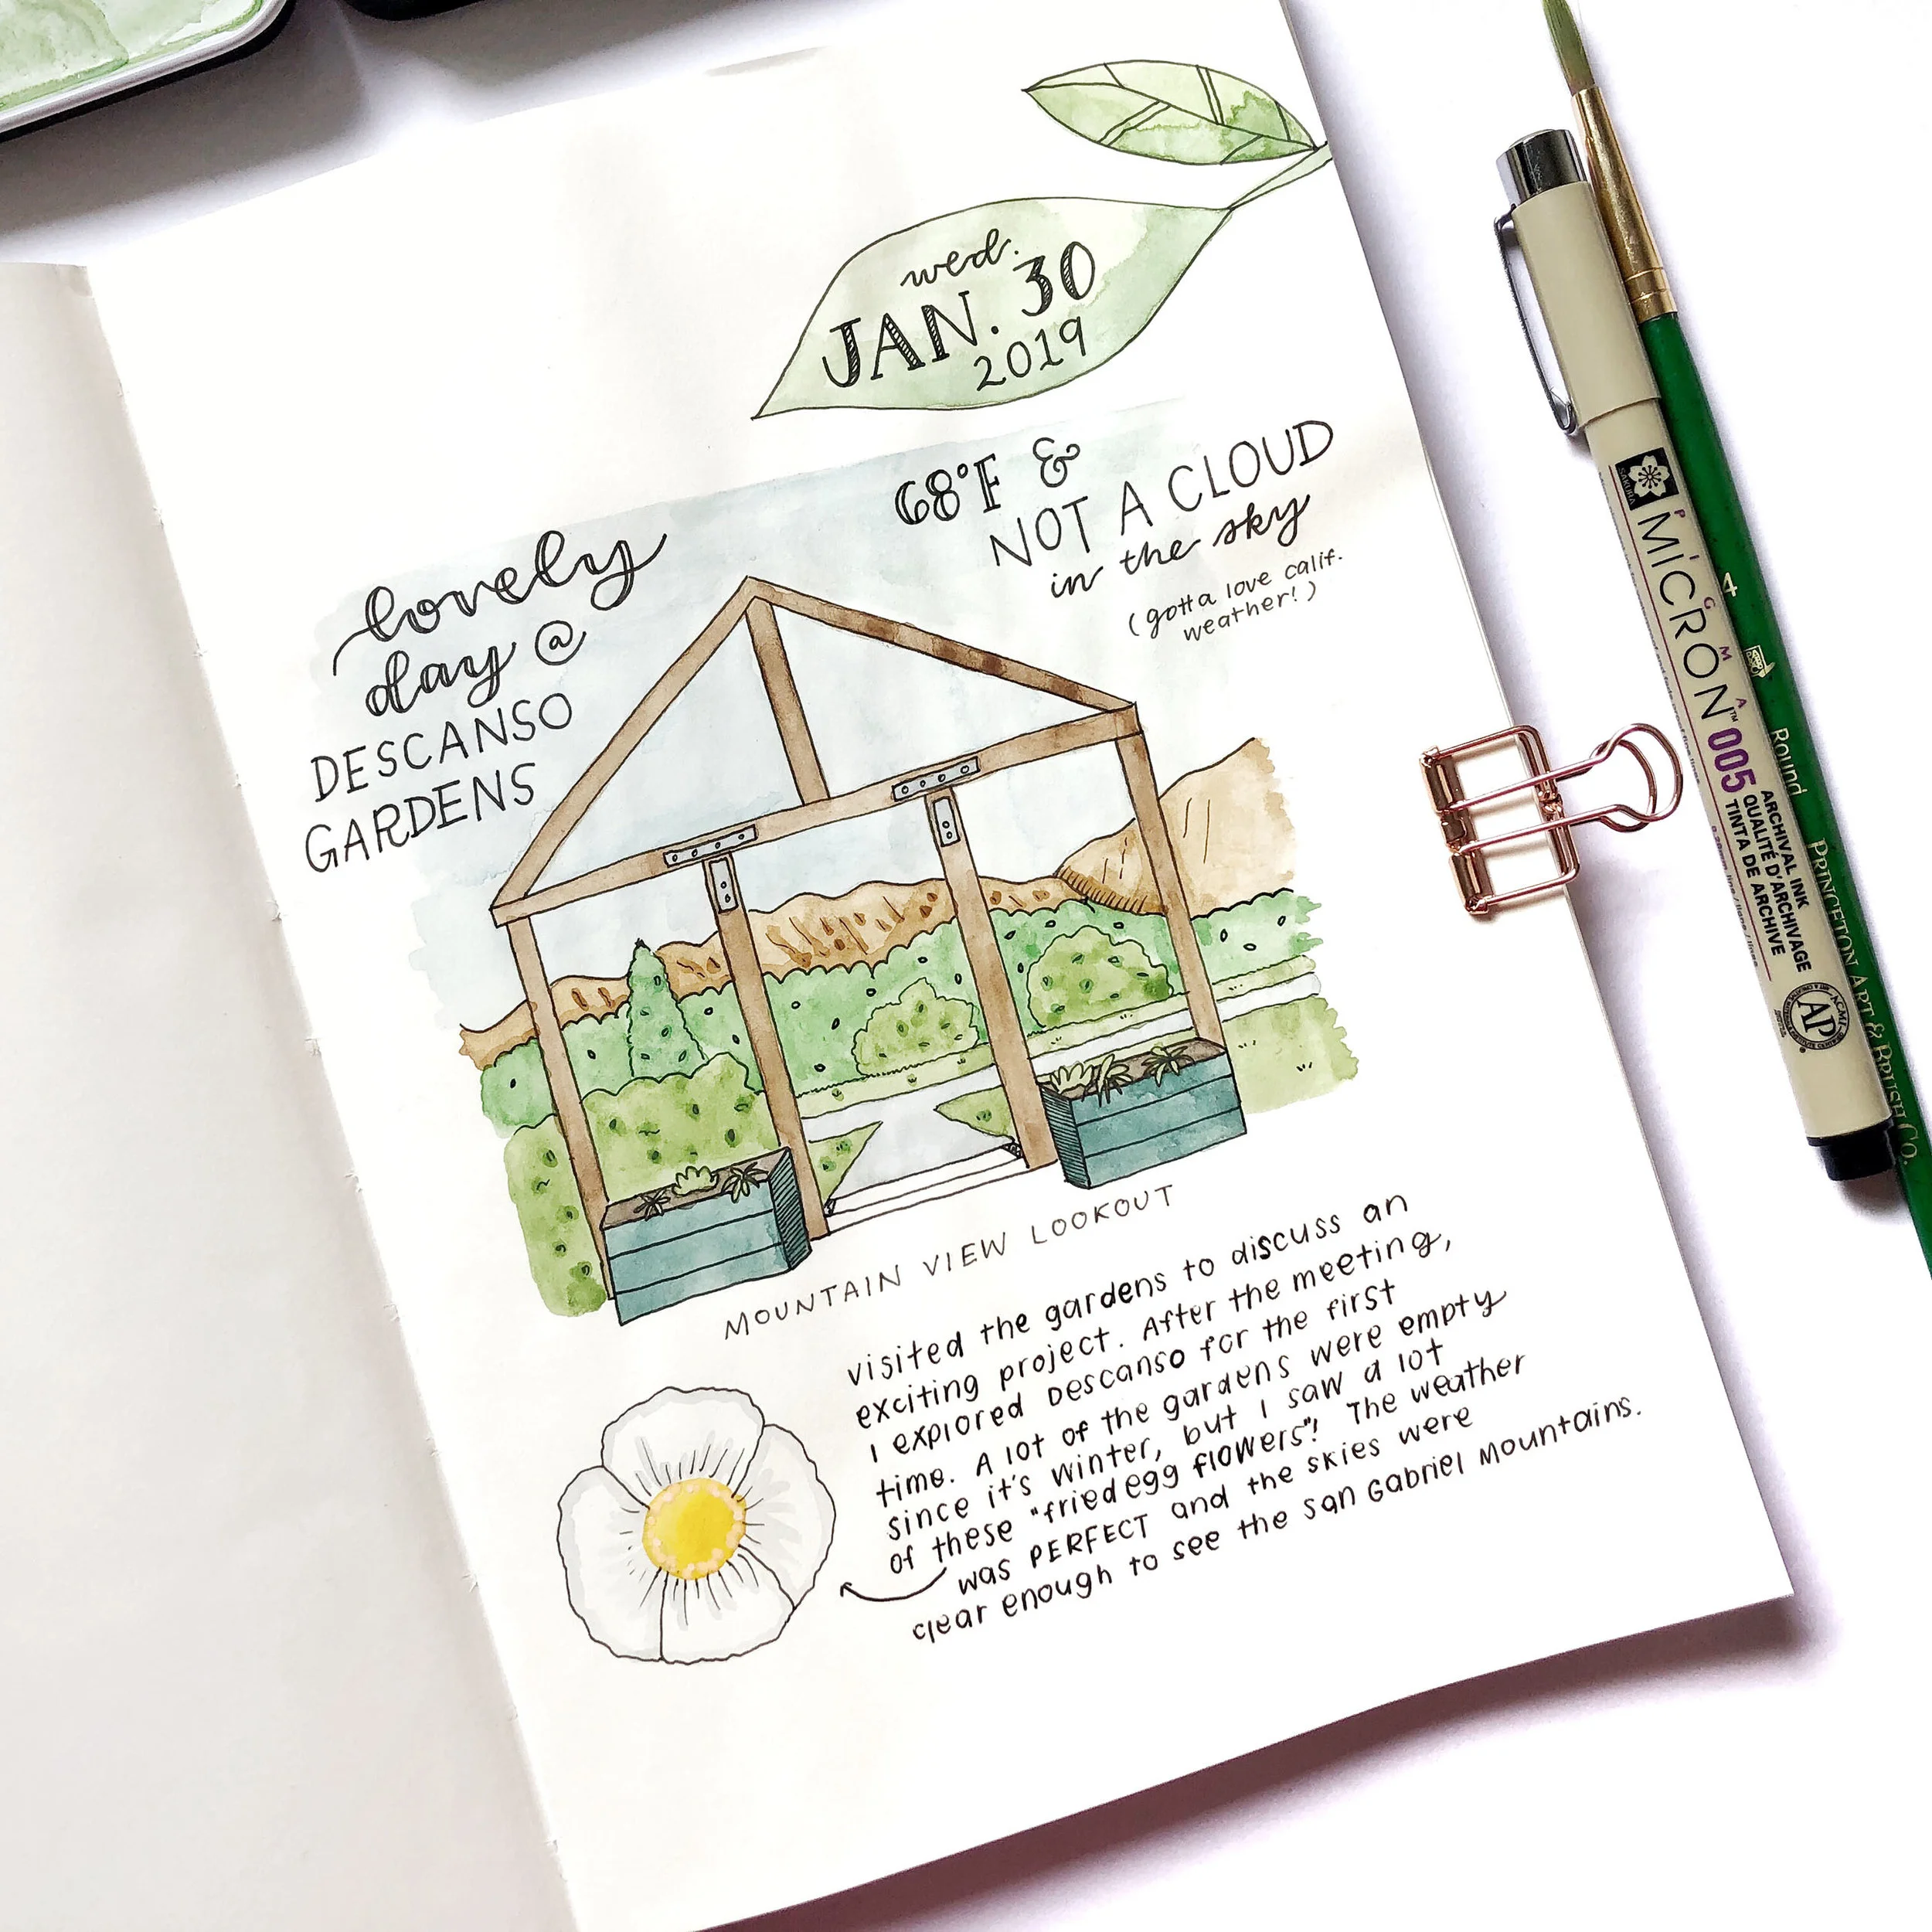 wed.
JAN. 30
2019
68°F &
NOT A CLOUD
in the sky
(gotta love calif.
weather!)
lovely
day @
DESCANSO
GARDENS
MOUNTAIN VIEW LOOKOUT
visited the gardens to discuss an
exciting project. After the meeting,
I explored Descanso for the first
time. A lot of the gardens were empty
since it's winter, but I saw a lot
of these "fried egg flowers"! The weather
was PERFECT and the skies were
clear enough to see the San Gabriel Mountains.
SAKURA
PIGMA
MICRON™ 005
ARCHIVAL INK
QUALITÉ D'ARCHIVAGE
TINTA DE ARCHIVE
ACMI
AP
4
Round
PRINCETON ART & BRUSH CO.